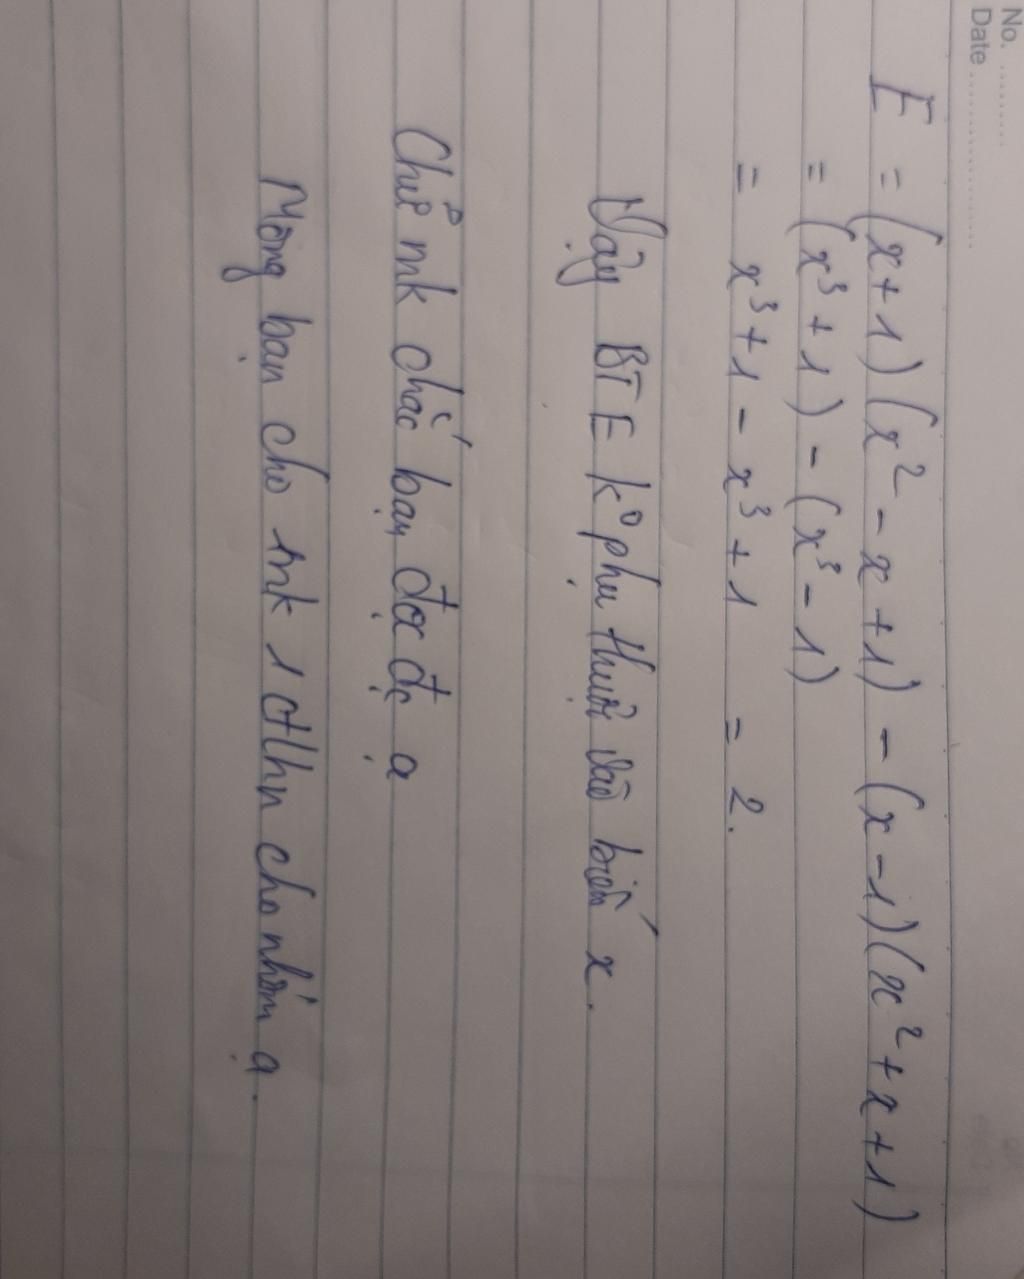 No. ..........
Date ..........................
E = (x+1)(x² - x +1) - (x -1)(x² + x +1)
= (x³ +1) - (x³ - 1)
= x³ +1 - x³ +1 = 2.
Vậy BT E k° phụ thuộc vào biến x.
Chữ mk chắc bạn đọc đc ạ
Mong bạn cho mk 1 ctlhn cho nhóm ạ.